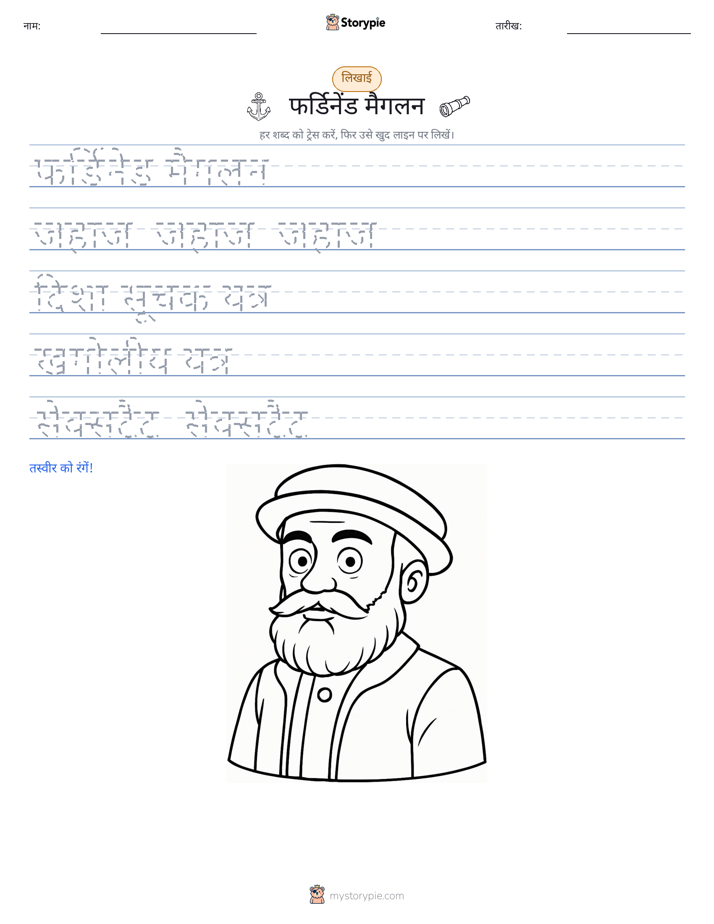 नाम:
Storypie
तारीख:
लिखाई
फर्डिनेंड मैगलन
हर शब्द को ट्रेस करें, फिर उसे खुद लाइन पर लिखें।
फर्डिनेंड मैगलन
जहाज जहाज जहाज
दिशा सूचक यंत्र
खगोलीय यंत्र
सेक्सटैंट सेक्सटैंट
तस्वीर को रंगें!
mystorypie.com